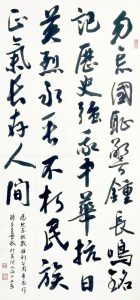 勿忘國耻警鐘長鳴銘
記歷史強我中華抗日
英烈永垂不朽民族
正氣長存人間